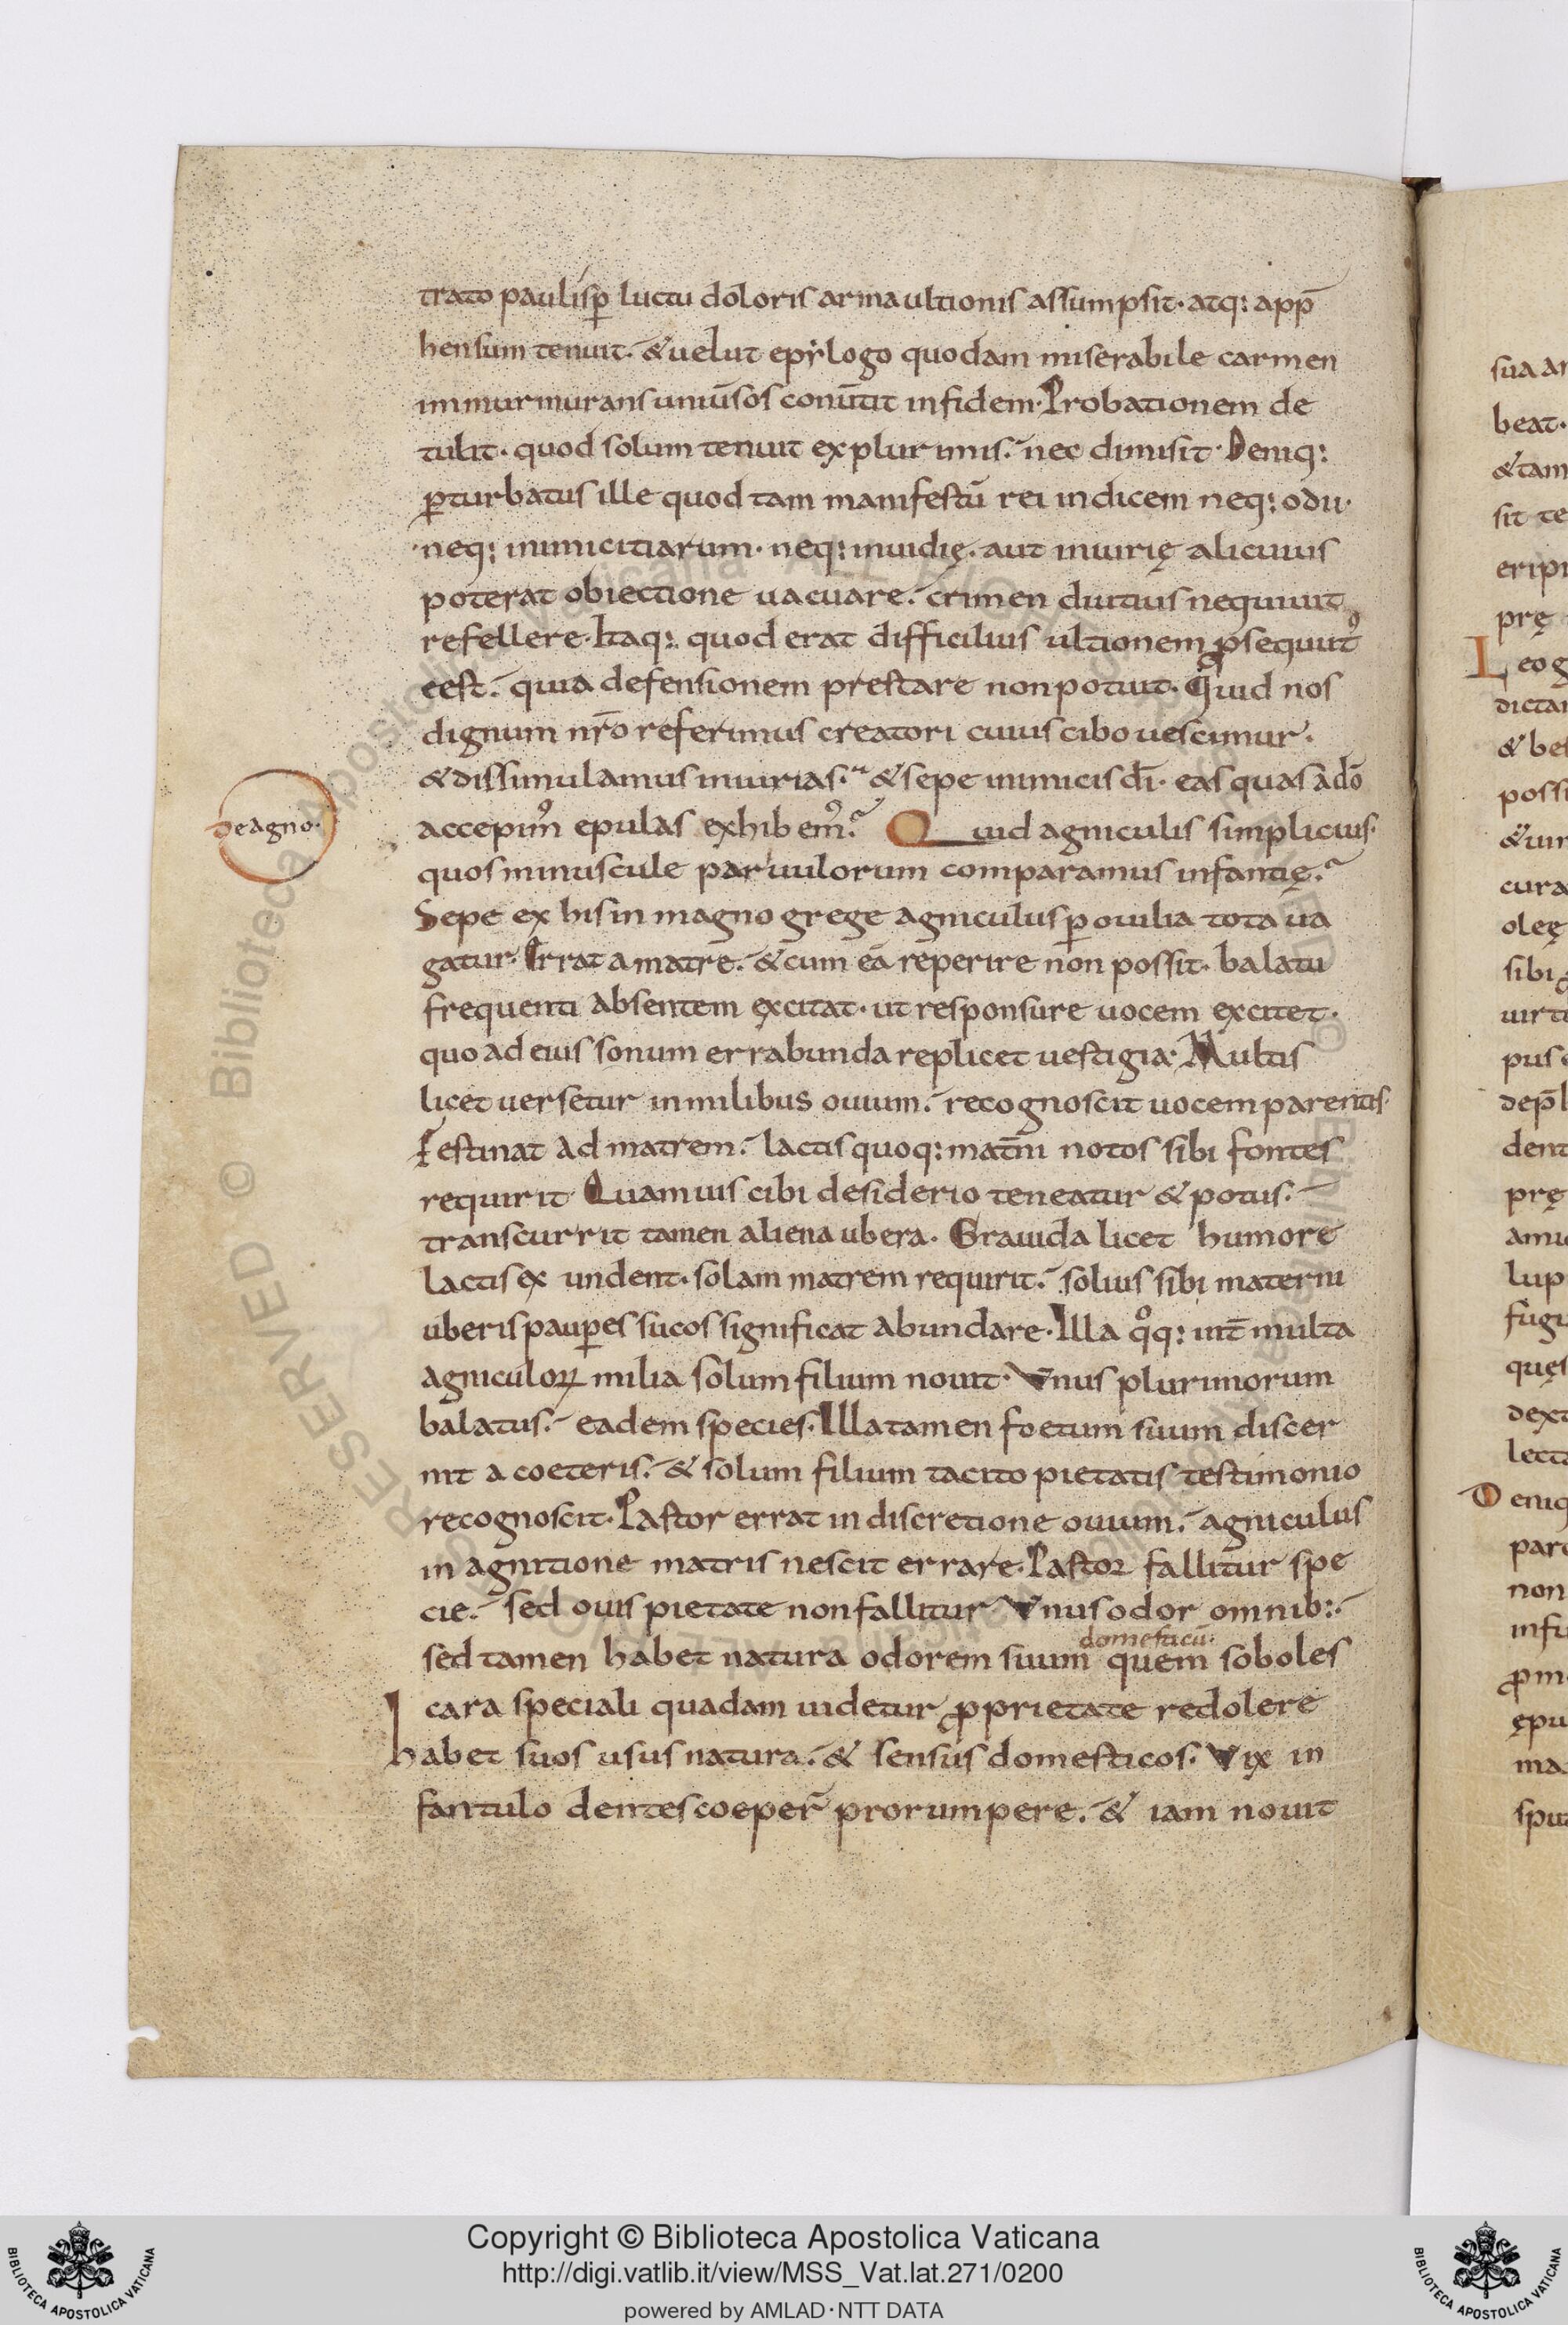 trato paulisp̄ luctu doloris arma ultionis assumpsit· atq: app̄
hensum tenuit· & uelut epylogo quodam miserabile carmen
inmurmurans uniūsos conūtit in fidem· Probationem de
tulit· quod solum tenuit ex plurimis· nec dimisit· Deniq:
p̄turbatus ille quod tam manifestū rei indicem neq: odii·
neq: inimicitiarum· neq: inuidię· aut iniurię alicuius
poterat obiectione uacuare· crimen diutius nequiuit
refellere· Itaq: quod erat difficilius ultionem ꝓsequitꝰ
eest· quia defensionem prestare non potuit· Quid nos
dignum nr̄o referimus creatori cuius cibo uescimur·
& dissimulamus iniurias· & sepe inimicis dī· eas quas a dō
accepimꝰ epulas exhibemꝰ· Quid agniculis simplicius·
quos minuscule paruulorum comparamus infantię·
Sepe ex his in magno grege agniculus p̄ ouilia tota ua
gatur· Errat a matre· & cum eā reperire non possit· balatu
frequenti absentem excitat· ut responsure uocem excitet·
quo ad eius sonum errabunda replicet uestigia· Multis
licet uersetur in milibus ouium· recognoscit uocem parentis·
Festinat ad matrem· lactis quoq: mat̄ni notos sibi fontes
requirit· Quamuis cibi desiderio teneatur & potus·
transcurrit tamen aliena ubera· Grauida licet humore
lactis ex undent· solam matrem requirit· solius sibi materni
uberis paup̄es sucos significat abundare· Illa qͦq: int̄ multa
agniculoꝝ milia solum filium nouit· Unus plurimorum
balatus· eadem species· Illa tamen foetum suum discer
nit a coeteris· & solum filium tacito pietatis testimonio
recognoscit· Pastor errat in discretione ouium· agniculus
in agnitione matris nescit errare· Pastor fallitur spe
cie· sed ouis pietate non fallitur· Unus odor omnib:·
domesticū·
sed tamen habet natura odorem suum quem soboles
cara speciali quadam uidetur ꝓprietate redolere
habet suos usus natura· & sensus domesticos· Vix in
fantulo dentes coeper̄ prorumpere· & iam nouit
de agno·
sua ar
beat·
& tam
sit te
eripi
prę
Leo g
dictar
& bes
possi
& uir
cura
oleę
sibi
uirtu
pus
dep̄
dent
prę
amic
lup
fugi
quęs
dext
lecta
Deniq
part
non
infu
ꝓm
ępu
ma
spu
Copyright © Biblioteca Apostolica Vaticana
http://digi.vatlib.it/view/MSS_Vat.lat.271/0200
powered by AMLAD·NTT DATA
BIBLIOTECA APOSTOLICA VATICANA
BIBLIOTECA APOSTOLICA VATICANA